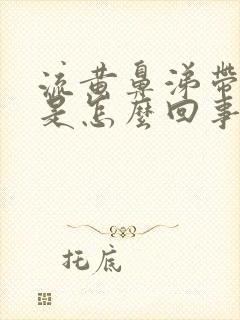 流黄鼻涕带
是怎麼回事
托底